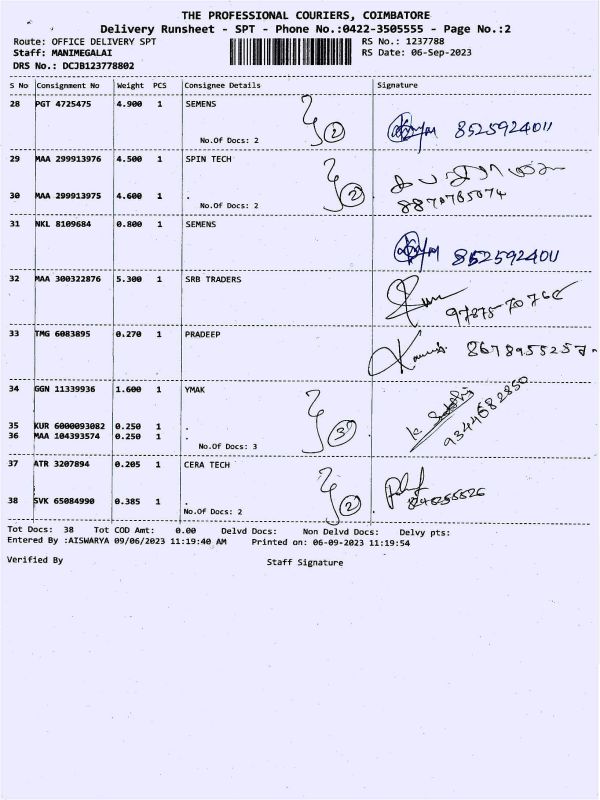 THE PROFESSIONAL COURIERS, COIMBATORE
Delivery Runsheet - SPT - Phone No.:0422-3505555 - Page No.:2
Route: OFFICE DELIVERY SPT RS No.: 1237788
Staff: MANIMEGALAI RS Date: 06-Sep-2023
DRS No.: DCJB123778802
S No Consignment No Weight PCS Consignee Details Signature
28 PGT 4725475 4.900 1 SEMENS
2 8525924011
No.Of Docs: 2
29 MAA 299913976 4.500 1 SPIN TECH
2
30 MAA 299913975 4.600 1 . 8870765074
No.Of Docs: 2
31 NKL 8109684 0.800 1 SEMENS
8525924011
32 MAA 300322876 5.300 1 SRB TRADERS
33 TMG 6083895 0.270 1 PRADEEP
34 GGN 11339936 1.600 1 YMAK
9344682850
35 KUR 6000093082 0.250 1 .
3
36 MAA 104393574 0.250 1 .
No.Of Docs: 3
37 ATR 3207894 0.205 1 CERA TECH
38 SVK 65084990 0.385 1 . 2
No.Of Docs: 2
Tot Docs: 38 Tot COD Amt: 0.00 Delvd Docs: Non Delvd Docs: Delvy pts:
Entered By :AISWARYA 09/06/2023 11:19:40 AM Printed on: 06-09-2023 11:19:54
Verified By Staff Signature